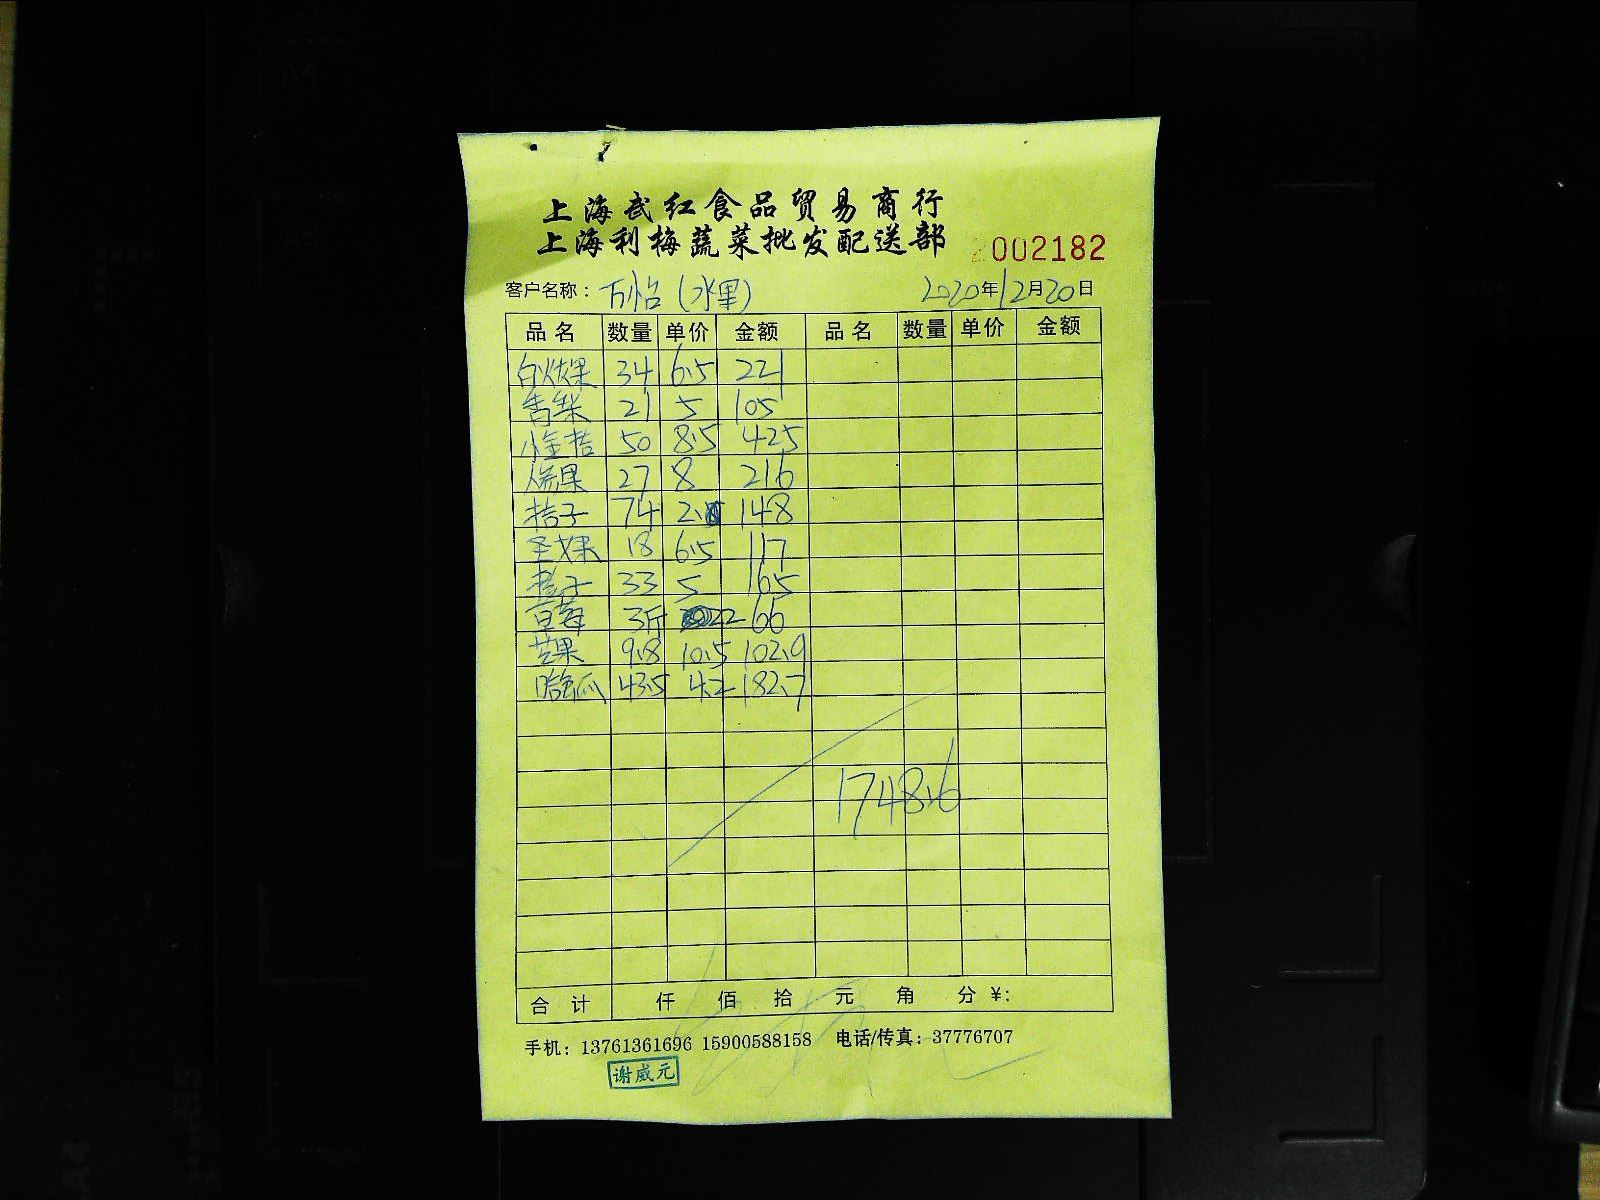 上海武红食品贸易商行
上海利梅蔬菜批发配送部
2002182
客户名称：万怡（水果） 2020年12月20日
品名 数量 单价 金额 品名 数量 单价 金额
白火龙果 34 6.5 221
青梨 21 5 105
小金桔 50 8.5 425
人参果 27 8 216
桔子 74 2 148
圣女果 18 6.5 117
橙子 33 5 165
草莓 3斤 22 66
芒果 9.8 10.5 102.9
哈密瓜 43.5 4.2 182.7
1748.6
合计 仟 佰 拾 元 角 分 ¥:
手机：13761361696 15900588158 电话/传真：37776707
谢威元